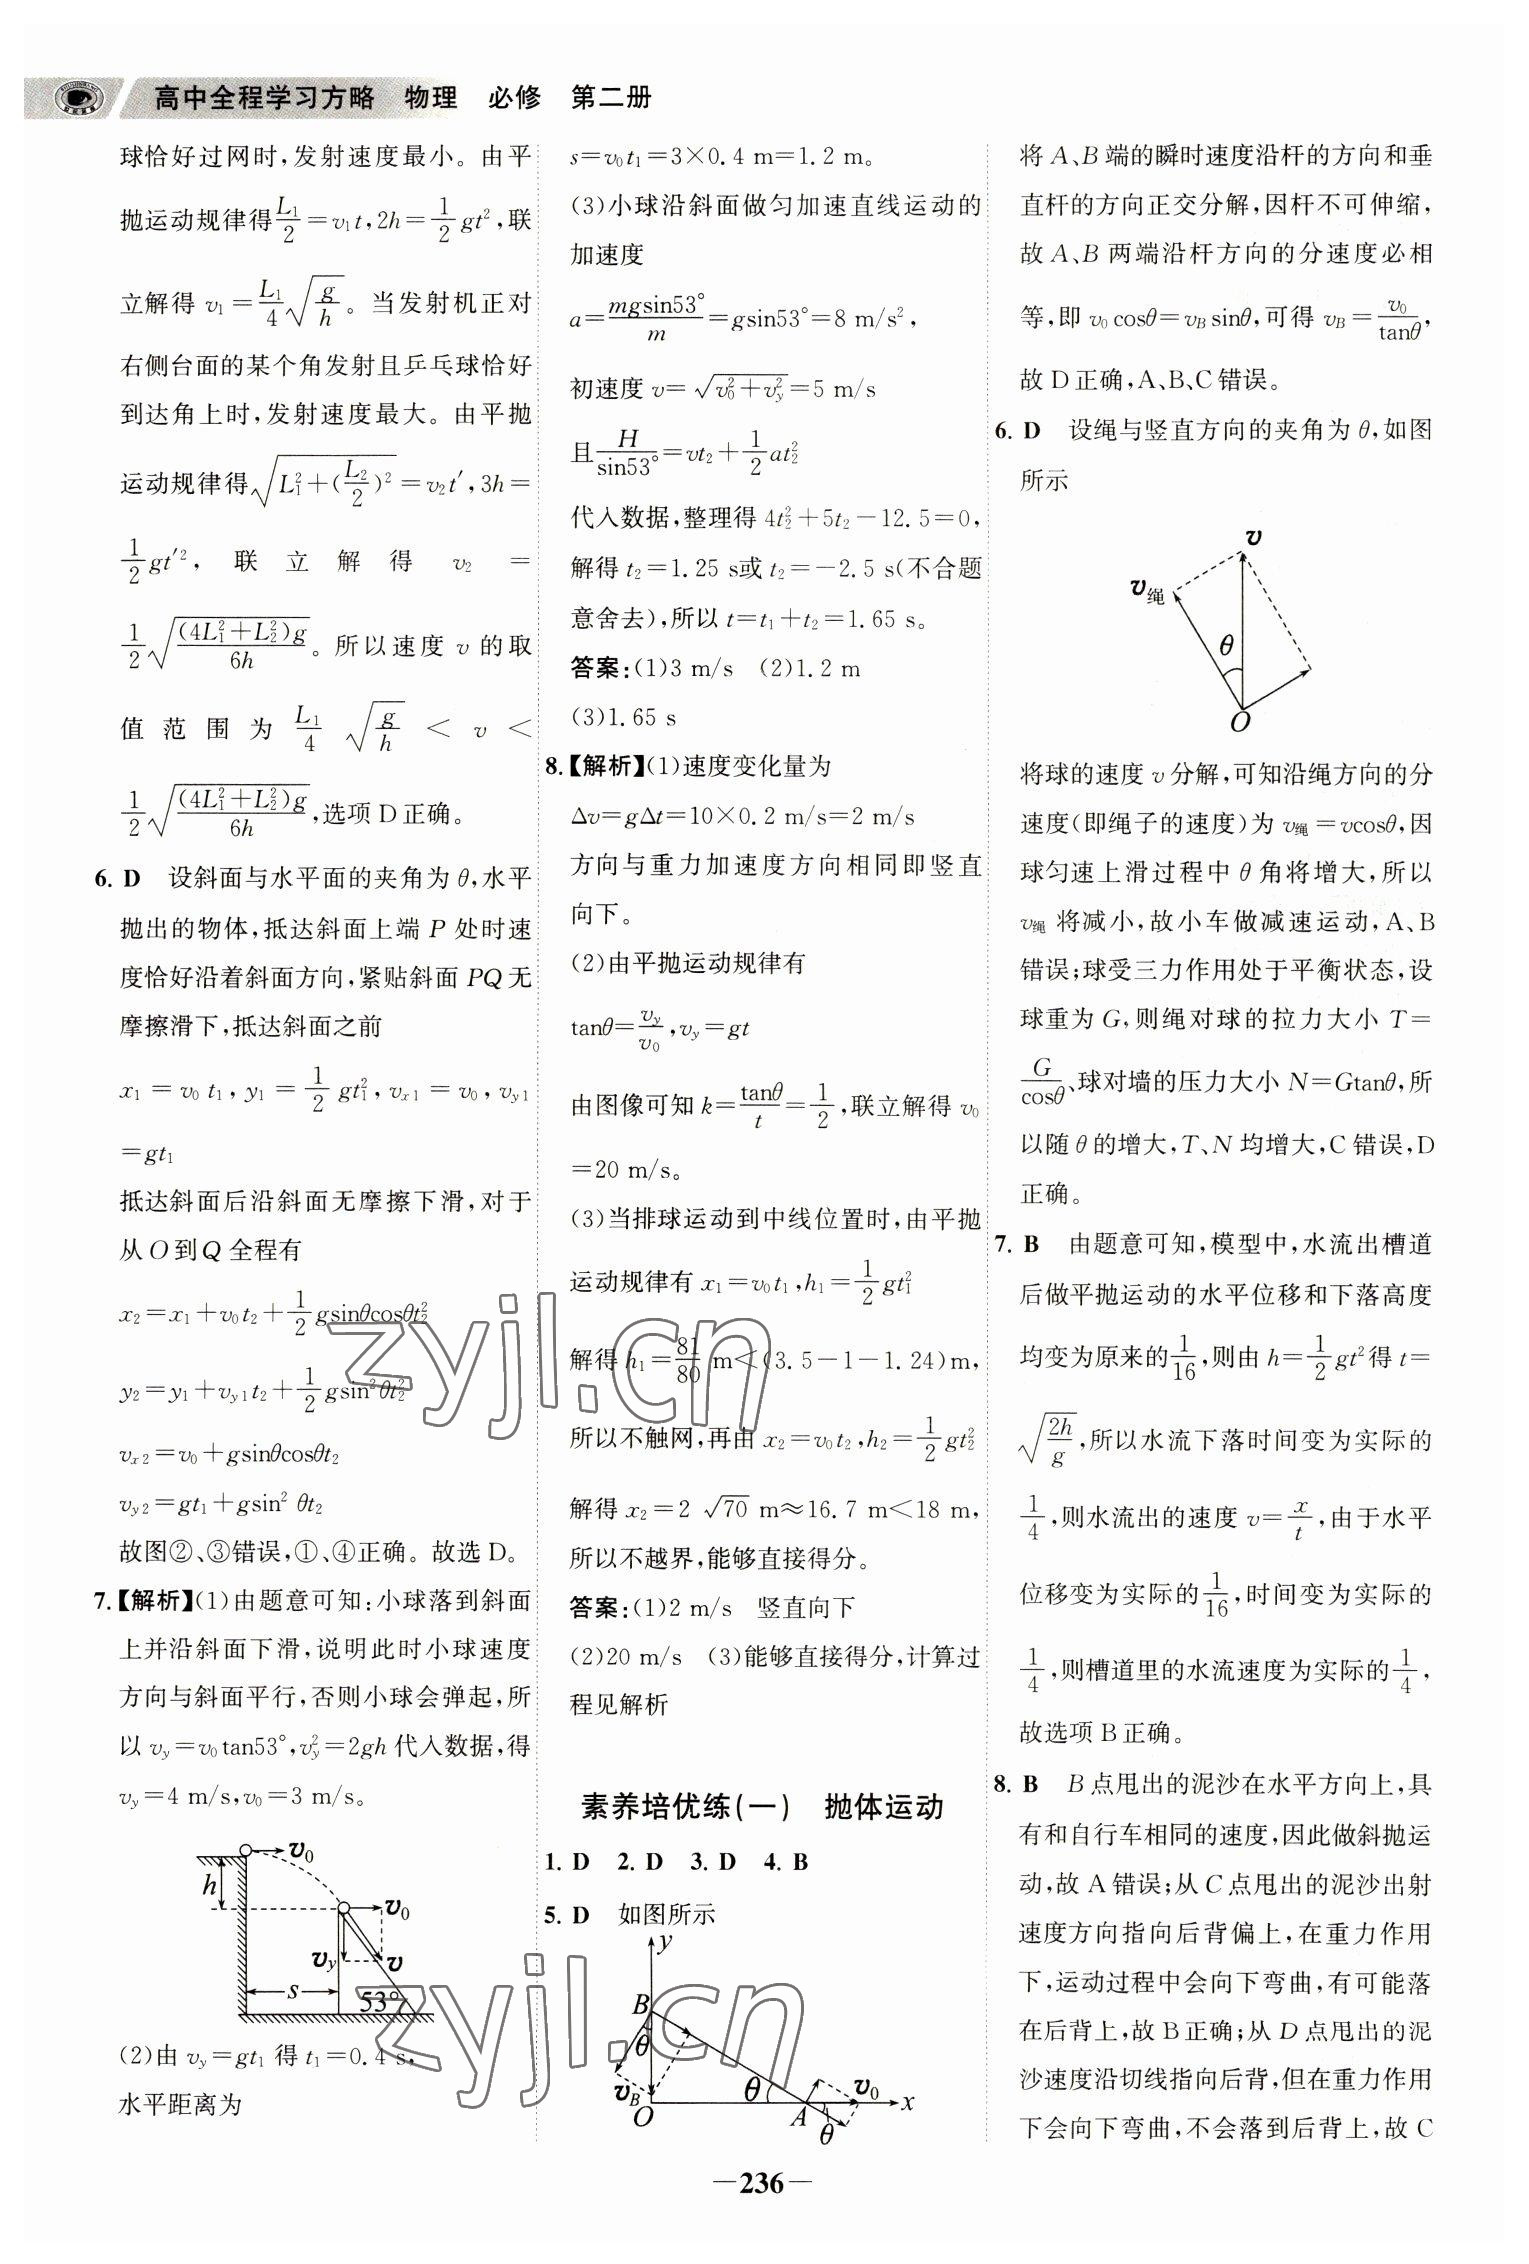 高中全程学习方略　物理　必修　第二册
球恰好过网时,发射速度最小。由平
抛运动规律得L₁/2=v₁t,2h=1/2gt²,联
立解得 v₁=L₁/4√(g/h)。当发射机正对
右侧台面的某个角发射且乒乓球恰好
到达角上时,发射速度最大。由平抛
运动规律得√(L₁²+(L₂/2)²)=v₂t′,3h=
1/2gt′²,联立解得 v₂=
1/2√((4L₁²+L₂²)g/6h)。所以速度 v 的取
值范围为 L₁/4√(g/h)<v<
1/2√((4L₁²+L₂²)g/6h),选项 D 正确。
6. D　设斜面与水平面的夹角为 θ,水平
抛出的物体,抵达斜面上端 P 处时速
度恰好沿着斜面方向,紧贴斜面 PQ 无
摩擦滑下,抵达斜面之前
x₁=v₀t₁,y₁=1/2gt₁²,vₓ₁=v₀,v_y1
=gt₁
抵达斜面后沿斜面无摩擦下滑,对于
从 O 到 Q 全程有
x₂=x₁+v₀t₂+1/2gsinθcosθt₂²
y₂=y₁+v_y1t₂+1/2gsin²θt₂²
vₓ₂=v₀+gsinθcosθt₂
v_y2=gt₁+gsin² θt₂
故图②、③错误,①、④正确。故选 D。
7.【解析】(1)由题意可知:小球落到斜面
上并沿斜面下滑,说明此时小球速度
方向与斜面平行,否则小球会弹起,所
以 v_y=v₀tan53°,v_y²=2gh 代入数据,得
v_y=4 m/s,v₀=3 m/s。
v₀
h
v₀
v_y
v
s
53°
(2)由 v_y=gt₁ 得 t₁=0.4 s,
水平距离为
s=v₀t₁=3×0.4 m=1.2 m。
(3)小球沿斜面做匀加速直线运动的
加速度
a=mgsin53°/m=gsin53°=8 m/s²,
初速度 v=√(v₀²+v_y²)=5 m/s
且H/sin53°=vt₂+1/2at₂²
代入数据,整理得 4t₂²+5t₂-12.5=0,
解得 t₂=1.25 s或 t₂=-2.5 s(不合题
意舍去),所以 t=t₁+t₂=1.65 s。
答案:(1)3 m/s　(2)1.2 m
(3)1.65 s
8.【解析】(1)速度变化量为
Δv=gΔt=10×0.2 m/s=2 m/s
方向与重力加速度方向相同即竖直
向下。
(2)由平抛运动规律有
tanθ=v_y/v₀,v_y=gt
由图像可知 k=tanθ/t=1/2,联立解得 v₀
=20 m/s。
(3)当排球运动到中线位置时,由平抛
运动规律有 x₁=v₀t₁,h₁=1/2gt₁²
解得 h₁=81/80 m<(3.5-1-1.24)m,
所以不触网,再由 x₂=v₀t₂,h₂=1/2gt₂²
解得 x₂=2√70 m≈16.7 m<18 m,
所以不越界,能够直接得分。
答案:(1)2 m/s　竖直向下
(2)20 m/s　(3)能够直接得分,计算过
程见解析
素养培优练(一)　抛体运动
1. D　2. D　3. D　4. B
5. D　如图所示
y
B
θ
v_B
O
θ
A
v₀
θ
x
将 A、B 端的瞬时速度沿杆的方向和垂
直杆的方向正交分解,因杆不可伸缩,
故 A、B 两端沿杆方向的分速度必相
等,即 v₀cosθ=v_B sinθ,可得 v_B=v₀/tanθ,
故 D 正确,A、B、C 错误。
6. D　设绳与竖直方向的夹角为 θ,如图
所示
v
v绳
θ
O
将球的速度 v 分解,可知沿绳方向的分
速度(即绳子的速度)为 v绳=vcosθ,因
球匀速上滑过程中 θ 角将增大,所以
v绳 将减小,故小车做减速运动,A、B
错误;球受三力作用处于平衡状态,设
球重为 G,则绳对球的拉力大小 T=
G/cosθ、球对墙的压力大小 N=Gtanθ,所
以随 θ 的增大,T、N 均增大,C 错误,D
正确。
7. B　由题意可知,模型中,水流出槽道
后做平抛运动的水平位移和下落高度
均变为原来的1/16,则由 h=1/2gt² 得 t=
√(2h/g),所以水流下落时间变为实际的
1/4,则水流出的速度 v=x/t,由于水平
位移变为实际的1/16,时间变为实际的
1/4,则槽道里的水流速度为实际的1/4,
故选项 B 正确。
8. B　B 点甩出的泥沙在水平方向上,具
有和自行车相同的速度,因此做斜抛运
动,故 A 错误;从 C 点甩出的泥沙出射
速度方向指向后背偏上,在重力作用
下,运动过程中会向下弯曲,有可能落
在后背上,故 B 正确;从 D 点甩出的泥
沙速度沿切线指向后背,但在重力作用
下会向下弯曲,不会落到后背上,故 C
—236—
zyjl.cn
zyjl.cn